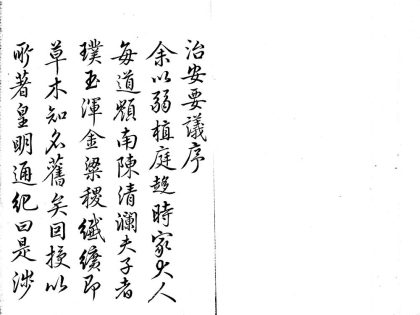 治安要議序
余以弱植庭趍時家大人
每道領南陳清瀾夫子者
璞玉渾金粱稷纖纊即
草木知名舊矣囙授以
所著皇明通紀曰是涉